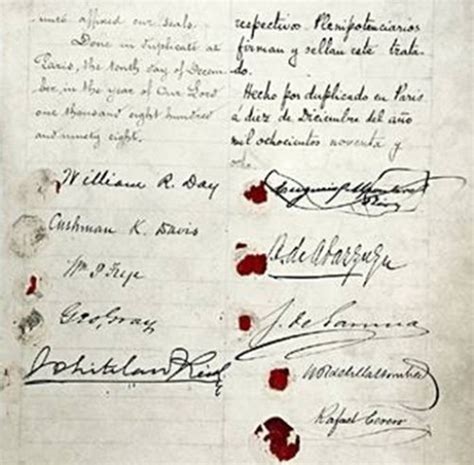 our seals.
Done in duplicate at
Paris, the tenth day of Decem-
ber, in the year of Our Lord
one thousand eight hundred
and ninety eight.
William R. Day
Cushman K. Davis
Wm P. Frye
Geo. Gray
Whitelaw Reid
respectivos Plenipotenciarios
firman y sellan este trata-
do.
Hecho por duplicado en Paris
á diez de Diciembre del año
mil ochocientos noventa y
ocho.
B. de Abarzuza
J. de Garnica
Rafael Cerero